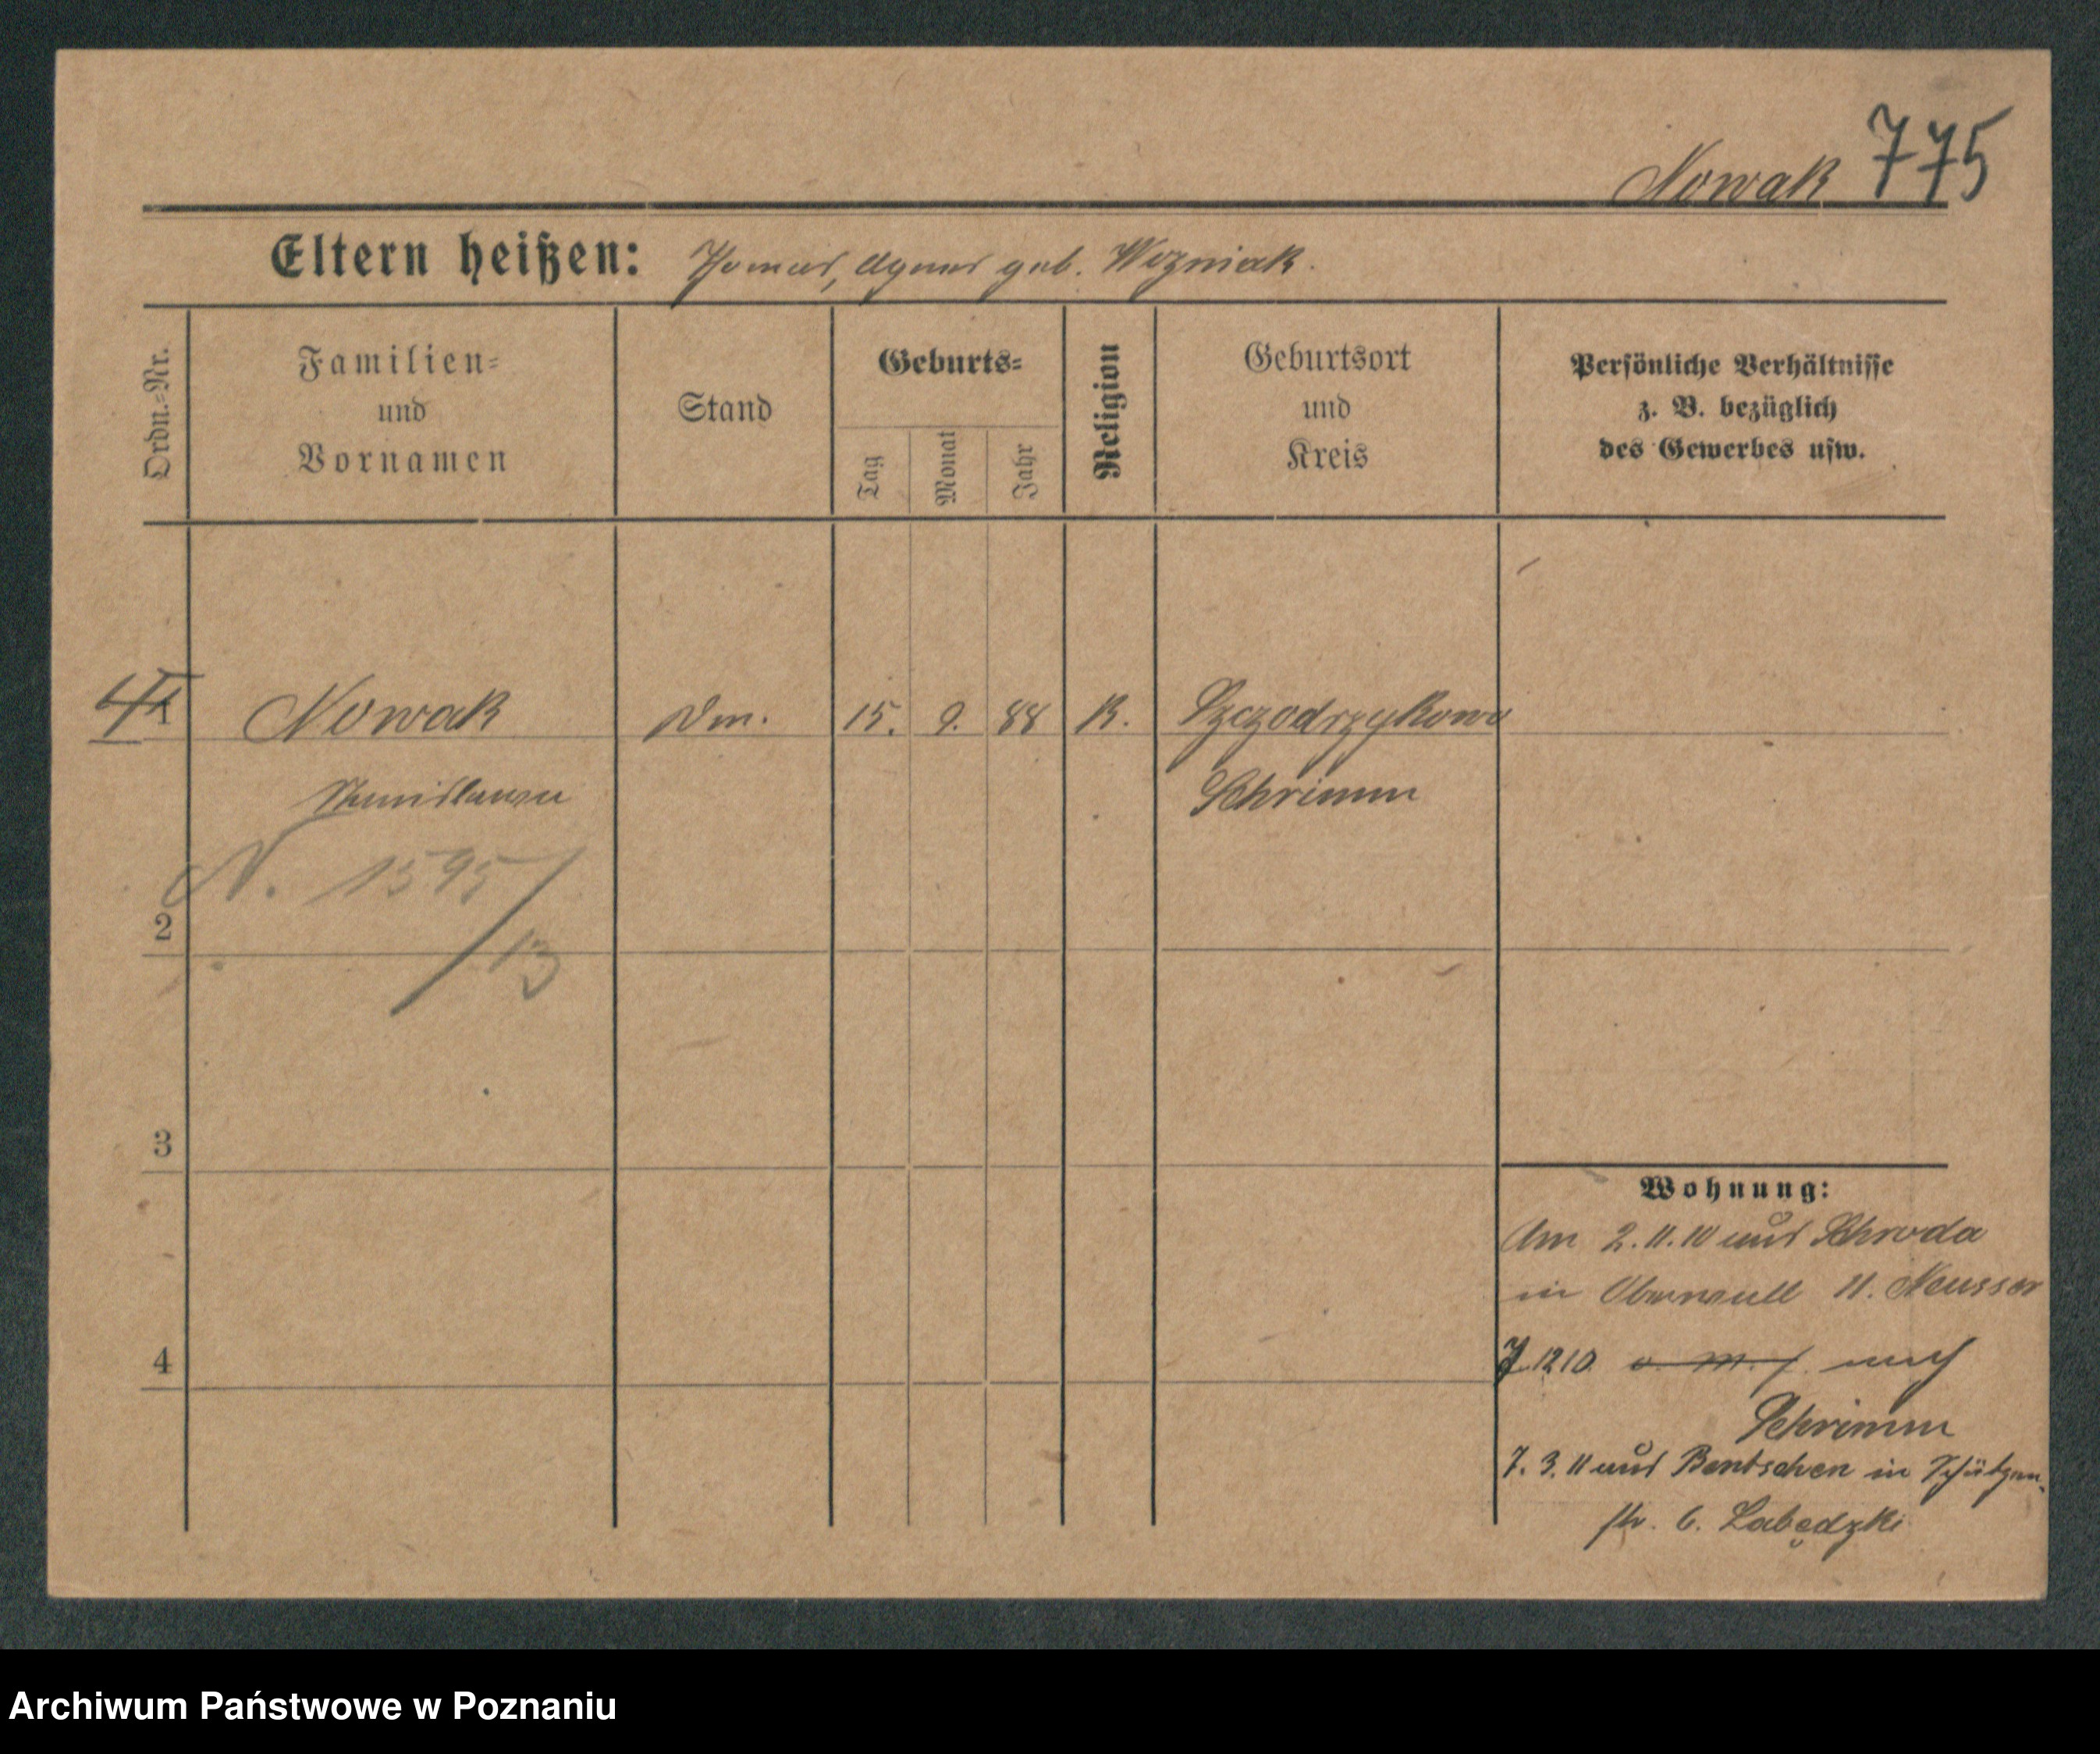 Nowak 775
Eltern heißen: Thomas, Agnes geb. Wozniak.
Ordn.=Nr.
Familien=
und
Vornamen
Stand
Geburts=
Tag
Monat
Jahr
Religion
Geburtsort
und
Kreis
Persönliche Verhältnisse
z. B. bezüglich
des Gewerbes usw.
1 Nowak Dm. 15. 9. 88 K. Szczodrzykowo
Stanislawa Schrimm
N. 1595/
13
2
3
4
Wohnung:
Am 2.11.10 aus Schroda
in Oberwall 11. Neusser
1210 nach
Schrimm
7. 3. 11 aus Bentschen in Schützen
str. 6. Łabędzki
Archiwum Państwowe w Poznaniu